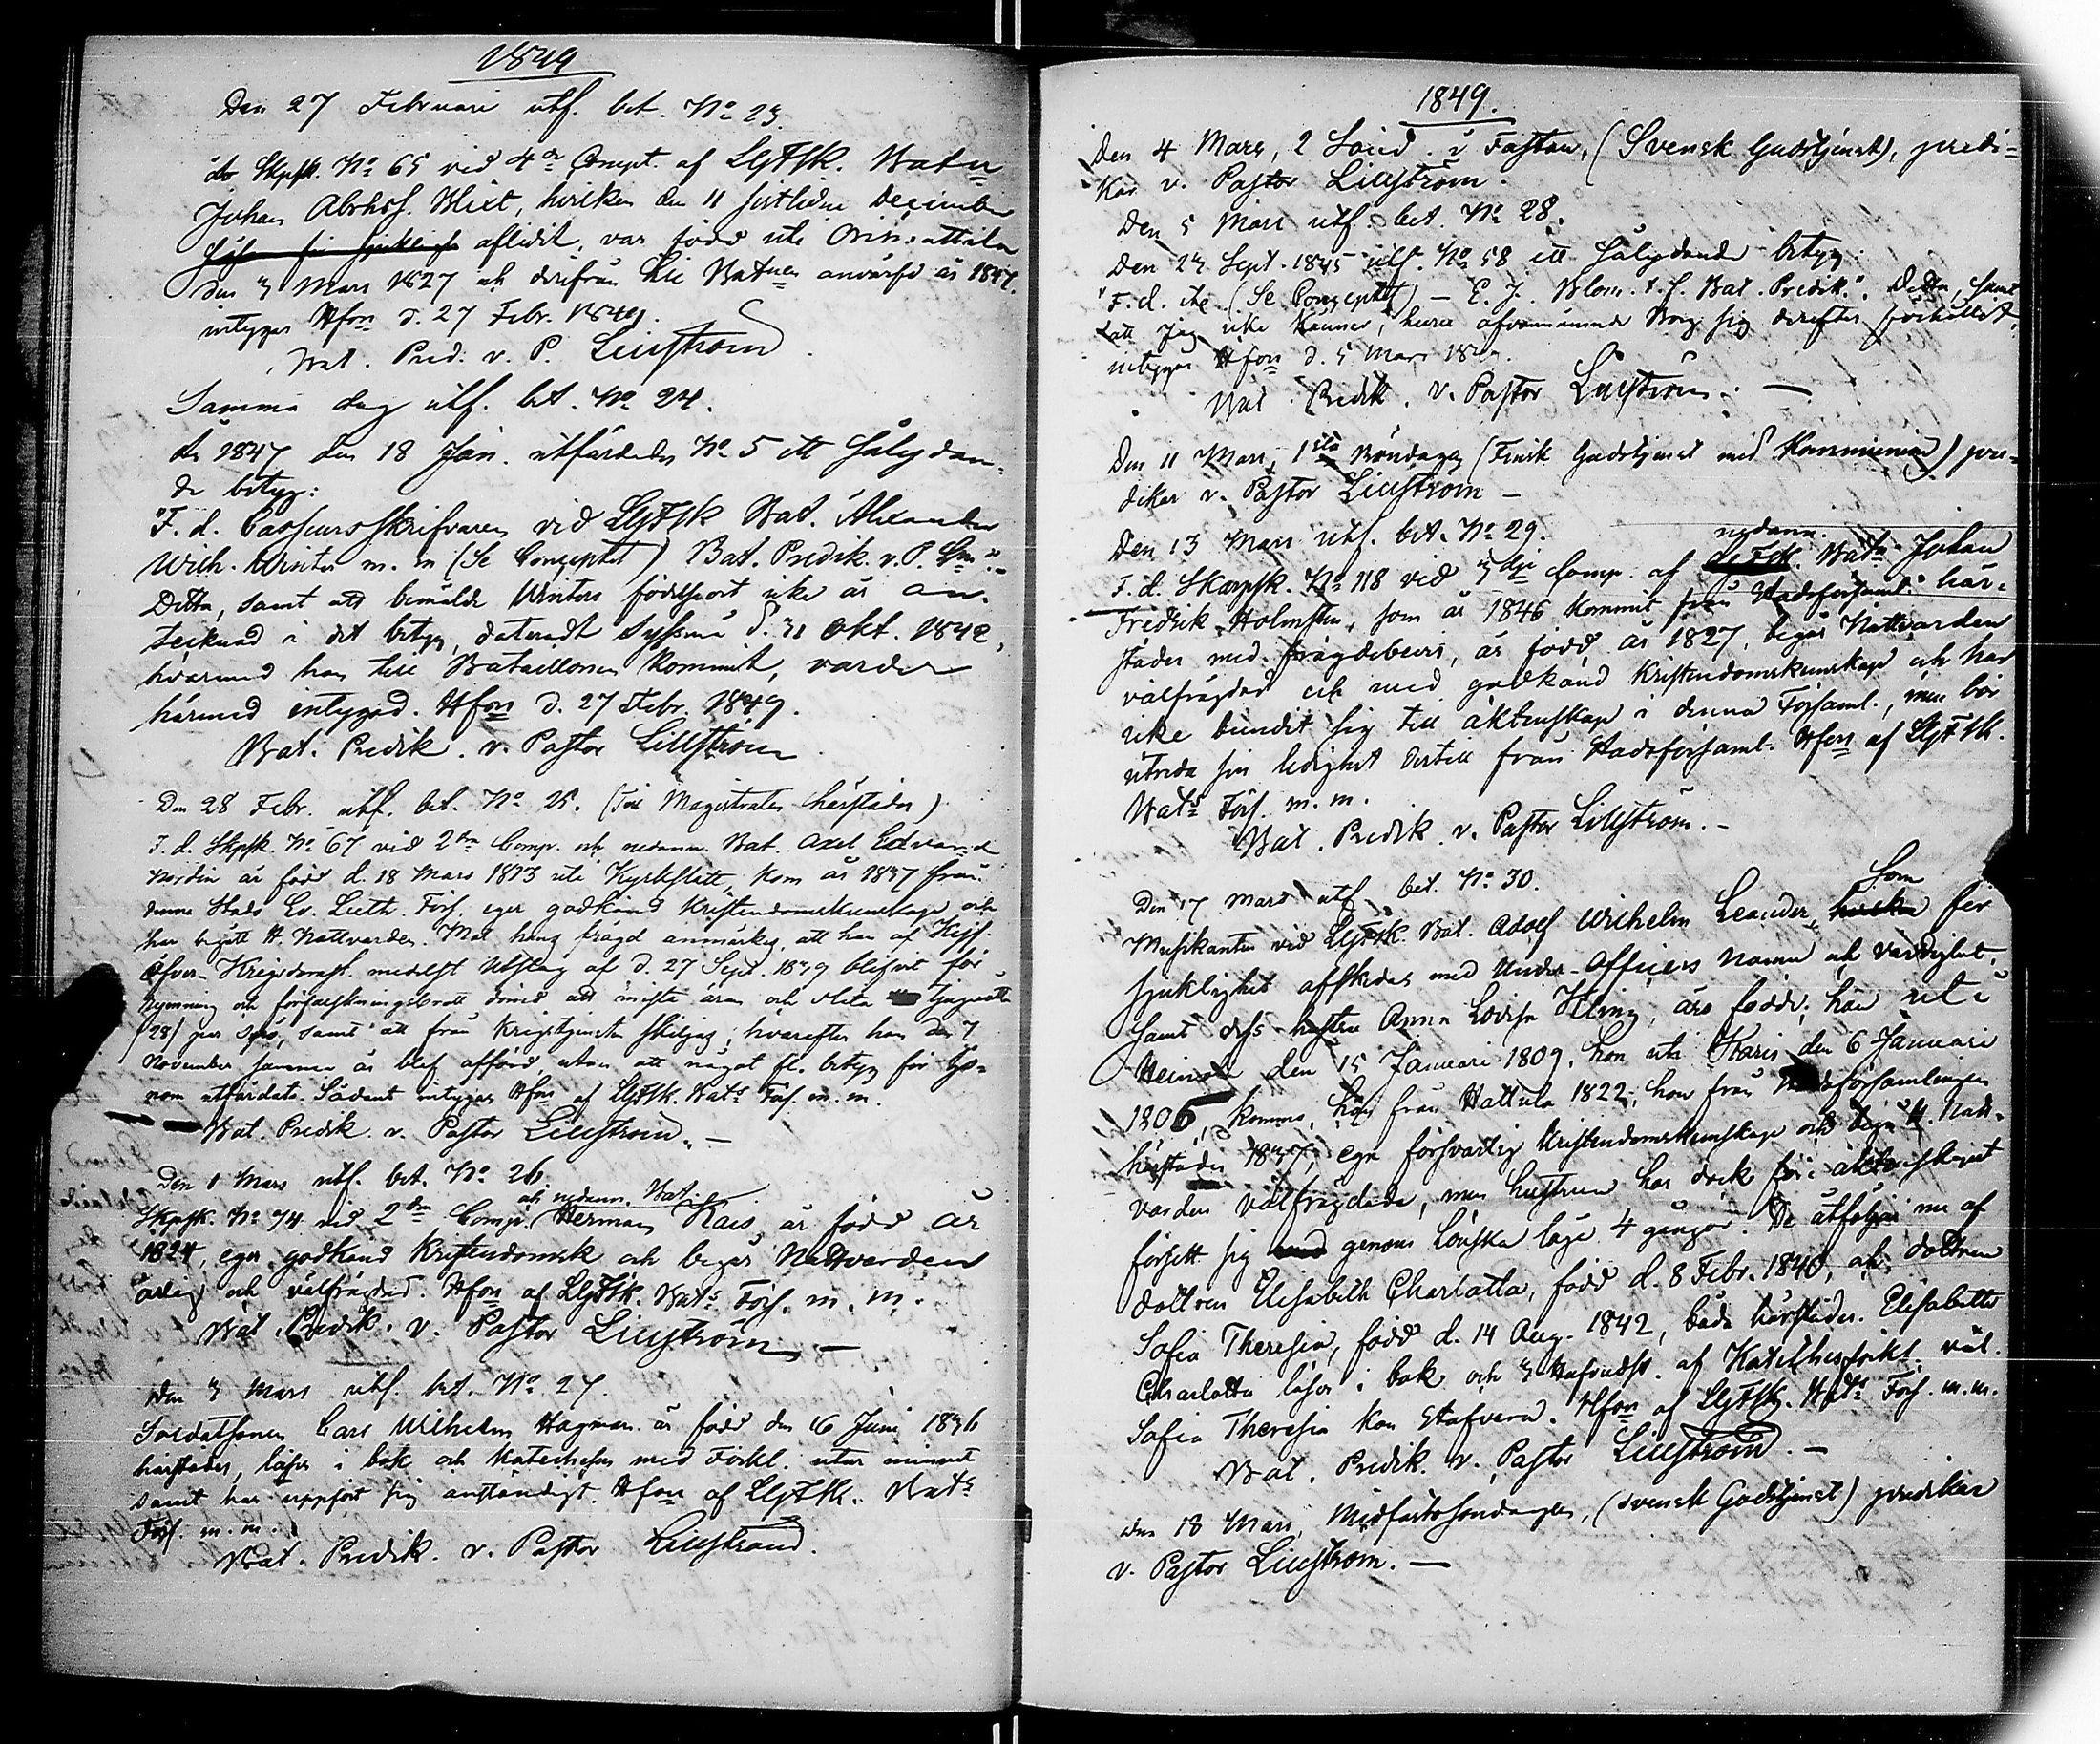 1849
Den 27 Februari utf. bet. No 23.
Skpsk. No 65 vid 4de Compt. af LGFSk. Batn
Johan Abrhsf. Blixt, hvilken den 11 sistledne December
aflidit, var född uti
den 3 Mars 1827 och derifrån till Batnen anvärfd år 1847.
intygas Hfors d. 27 Febr. 1849.
Bat. Pred. v. P. Lillström
Samma dag utf. bet. No 24.
År 1847 den 18 Jan. utfärdades No 5 ett följdan-
de betyg:
"F. d. Casseursskrifvaren vid LGFSk Bat. Alexander
Wilh. Winter m. m (Se Conzeptet) Bat. Predik. v. P. Lm".-
Detta, samt att bemälde Winters födelseort icke är an-
tecknad i det betyg, dateradt d. 31 Okt. 1842,
hvarmed han till Bataillonen kommit, varder
härmed intygad. Hfors d. 27 Febr. 1849.
Bat. Predik. v. Pastor Lillström
Den 28 Febr. utf. bet. No 25. (Till Magistraten härstädes)
F. d. Skpsk. No 67 vid 2dra Comp. och nedann. Bat. Axel Edvard
Nordin är född d. 18 Mars 1813 uti Kyrkslätt, kom år 1837 från
denna Stads Ev. Luth. Förs. eger godkänd Kristendomskunskap och
har begått H. Nattvarden. Mot hans frägd anmärkes, att han af Kejs.
Öfver-Krigsdomst. medelst Utslag af d. 27 Sept. 1839 blifvit för
rymning och förfalskningsbrott dömd att mista äran och slita tjuguåtta
(28) par spö, samt att från Krigstjensten skiljas; hvarefter han den 7
November samma år blef afförd, utan att något fl. betyg för ho-
nom utfärdats. Sådant intygas Hfors af LGFSk. Bats Förs. m. m.
Bat. Predik. v. Pastor Lillström.-
Den 1 Mars utf. bet. No 26
och nedann. Bat.
Skpsk. No 74 vid 2dra Comp. Herman Rais är född år
1824, eger godkänd Kristendomsk och begår Nattvarden
årlig och välfrägdad. Hfors af LGFSk. Bats Förs. m. m.
Bat. Predik. v. Pastor Lillström.-
Den 3 Mars utf. bet. No 27.
Soldatsonen Carl Wilhelm Hagman är född den 6 Juni 1836
härstädes, läser i bok och Katechesen med Förkl. utur minnet
samt har uppfört sig anständigt. Hfors af LGFSk. Bats
Förs. m. m.
Bat. Predik. v. Pastor Lillström.
1849.
Den 4 Mars, 2 Sönd. i Fastan, (Svensk Gudstjenst), predi-
kar v. Pastor Lillström.
Den 5 Mars utf. bet. No 28.
Den 23 Sept. 1845 utf. No 58 ett följdande betyg:
"F. d. etc (Se Conzeptet) - E. J. Blom. t. f. Bat. Predik.". Detta, samt
att jag icke känner, huru ofvannämnde Borg sig derefter förhållit,
intygas Hfors d. 5 Mars 1849.
Bat. Predik. v. Pastor Lillström. -
Den 11 Mars, 1sta Böndagen (Finsk Gudstjenst med Kommunion) pre-
dikar v. Pastor Lillström -
Den 13 Mars utf. bet. No 29.
nedann.
F. d. Skarpsk. No 118 vid 3dje Comp. af Batn Johan
Fredrik Holmsten, som år 1846 kommit från Stadsförsaml. här-
städes med frägdebevis, är född år 1827, begår Nattvarden
välfrägdad och med godkänd Kristendomskunskap och har
icke bundit sig till äktenskap i denna Församl., men bör
utreda sin ledighet dertill från Stadsförsaml. Hfors af LGFSk.
Bats Förs. m. m.
Bat. Predik. v. Pastor Lillström.-
Den 17 Mars utf. bet. No 30.
Som
Musikanten vid LGFSk. Bat. Adolf Wilhelm Leander, hvilken för
sjuklighet afskedas med Under-Officers namn och värdighet,
samt dess hustru Anna Lovisa Kling, äro födde: han uti
Heinola den 15 Januari 1809, hon uti Karis den 6 Januari
1806, komne, han från Hattula 1822, hon från Stadsförsamlingen
härstädes 1837, ega försvarlig Kristendomskunskap och begå H. Natt-
varden välfrägdade, men hustrun har dock före äktenskapet
försett sig genom lönska läge 4 gånger. De åtföljas nu af
dottren Elisabeth Charlotta, född d. 8 Febr. 1840, och dottren
Sofia Theresia, född d. 14 Aug. 1842, båda härstädes. Elisabeth
Charlotta läser i bok och 3 Hufvudst. af Katechesförkl. väl.
Sofia Theresia kan stafvera. Hfors af LGFSk. Bats Förs. m. m.
Bat. Predik. v. Pastor Lillström. -
Den 18 Mars, Midfastosöndagen, (svensk Gudstjenst) predikar
v. Pastor Lillström. -